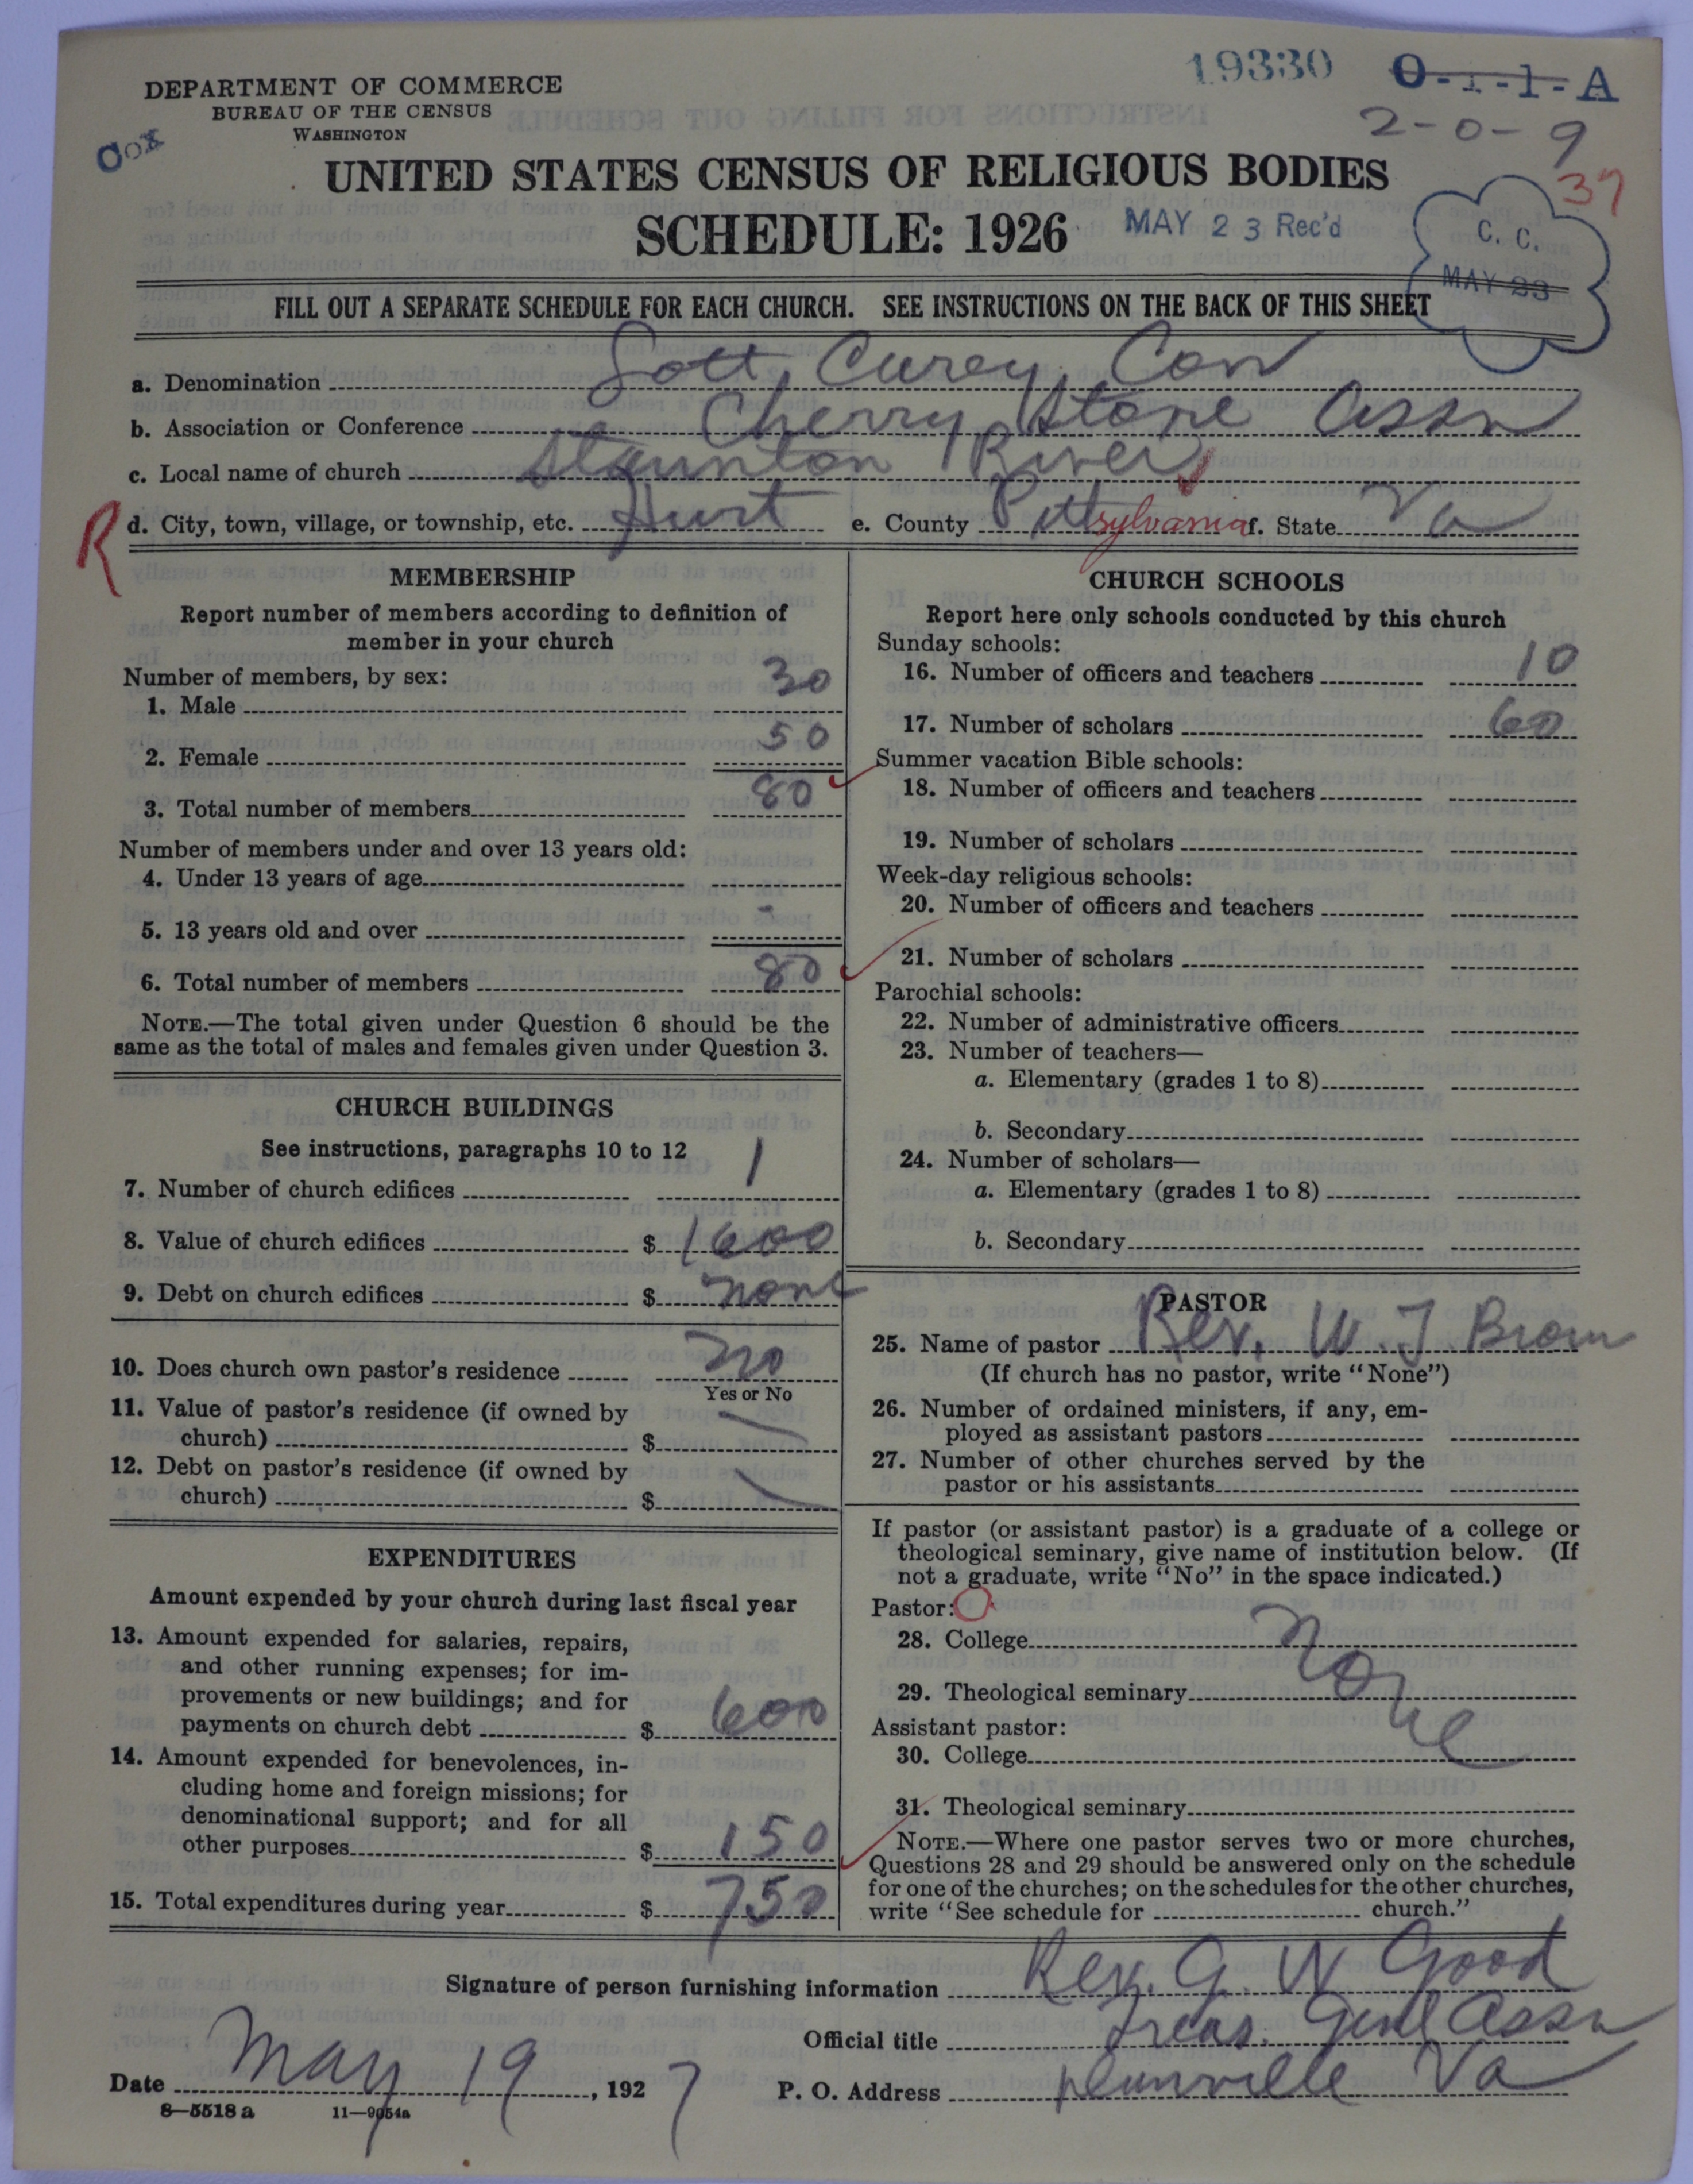 19330 O-1-1-A
DEPARTMENT OF COMMERCE
BUREAU OF THE CENSUS
WASHINGTON
Cox
2-0-9
37
UNITED STATES CENSUS OF RELIGIOUS BODIES
SCHEDULE: 1926
MAY 23 Rec'd
C. C.
MAY 23
FILL OUT A SEPARATE SCHEDULE FOR EACH CHURCH. SEE INSTRUCTIONS ON THE BACK OF THIS SHEET
a. Denomination Sott, Curey, Con
b. Association or Conference Cherry Stone Assn
c. Local name of church Staunton River
R
d. City, town, village, or township, etc. Hurt e. County Pittsylvania f. State Va
MEMBERSHIP
Report number of members according to definition of
member in your church
Number of members, by sex:
1. Male 30
2. Female 50
3. Total number of members 80
Number of members under and over 13 years old:
4. Under 13 years of age
5. 13 years old and over -
6. Total number of members 80
NOTE.—The total given under Question 6 should be the
same as the total of males and females given under Question 3.
CHURCH BUILDINGS
See instructions, paragraphs 10 to 12
7. Number of church edifices 1
8. Value of church edifices $ 1600
9. Debt on church edifices $ none
10. Does church own pastor's residence no
Yes or No
11. Value of pastor's residence (if owned by
church) $
12. Debt on pastor's residence (if owned by
church) $
EXPENDITURES
Amount expended by your church during last fiscal year
13. Amount expended for salaries, repairs,
and other running expenses; for im-
provements or new buildings; and for
payments on church debt $ 600
14. Amount expended for benevolences, in-
cluding home and foreign missions; for
denominational support; and for all
other purposes $ 150
15. Total expenditures during year $ 750
CHURCH SCHOOLS
Report here only schools conducted by this church
Sunday schools:
16. Number of officers and teachers 10
17. Number of scholars 60
Summer vacation Bible schools:
18. Number of officers and teachers
19. Number of scholars
Week-day religious schools:
20. Number of officers and teachers
21. Number of scholars
Parochial schools:
22. Number of administrative officers
23. Number of teachers—
a. Elementary (grades 1 to 8)
b. Secondary
24. Number of scholars—
a. Elementary (grades 1 to 8)
b. Secondary
PASTOR
25. Name of pastor Rev. W. J. Brown
(If church has no pastor, write "None")
26. Number of ordained ministers, if any, em-
ployed as assistant pastors
27. Number of other churches served by the
pastor or his assistants
If pastor (or assistant pastor) is a graduate of a college or
theological seminary, give name of institution below. (If
not a graduate, write "No" in the space indicated.)
Pastor:
28. College None
29. Theological seminary
Assistant pastor:
30. College
31. Theological seminary
NOTE.—Where one pastor serves two or more churches,
Questions 28 and 29 should be answered only on the schedule
for one of the churches; on the schedules for the other churches,
write "See schedule for church."
Signature of person furnishing information Rev. G. W Good
Official title Treas. Genl Assn
Date May 19, 1927 P. O. Address Va
8—5518 a 11—9054a